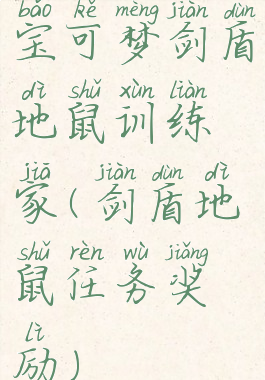 bǎo kě mèng jiàn dùn
宝可梦剑盾
dì shǔ xùn liàn
地鼠训练
jiā jiàn dùn dì
家(剑盾地
shǔ rèn wù jiǎng
鼠任务奖
lì
励)